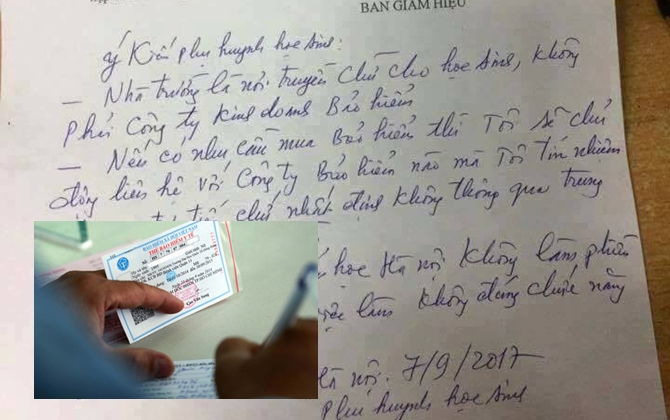 BAN GIÁM HIỆU
ý Kiến phụ huynh học sinh:
– Nhà trường là nơi truyền chữ cho học sinh, không
phải Công ty Kinh doanh Bảo hiểm
– Nếu có nhu cầu mua Bảo hiểm thì Tôi sẽ chủ
động liên hệ với Công ty Bảo hiểm nào mà Tôi tín nhiệm
chứ nhất định không thông qua trung
BẢO HIỂM XÃ HỘI VIỆT NAM
THẺ BẢO HIỂM Y TẾ
học Hà nội không làm phiền
việc làm không đúng chức năng
Hà nội. 7/9/2017
Phụ huynh học sinh